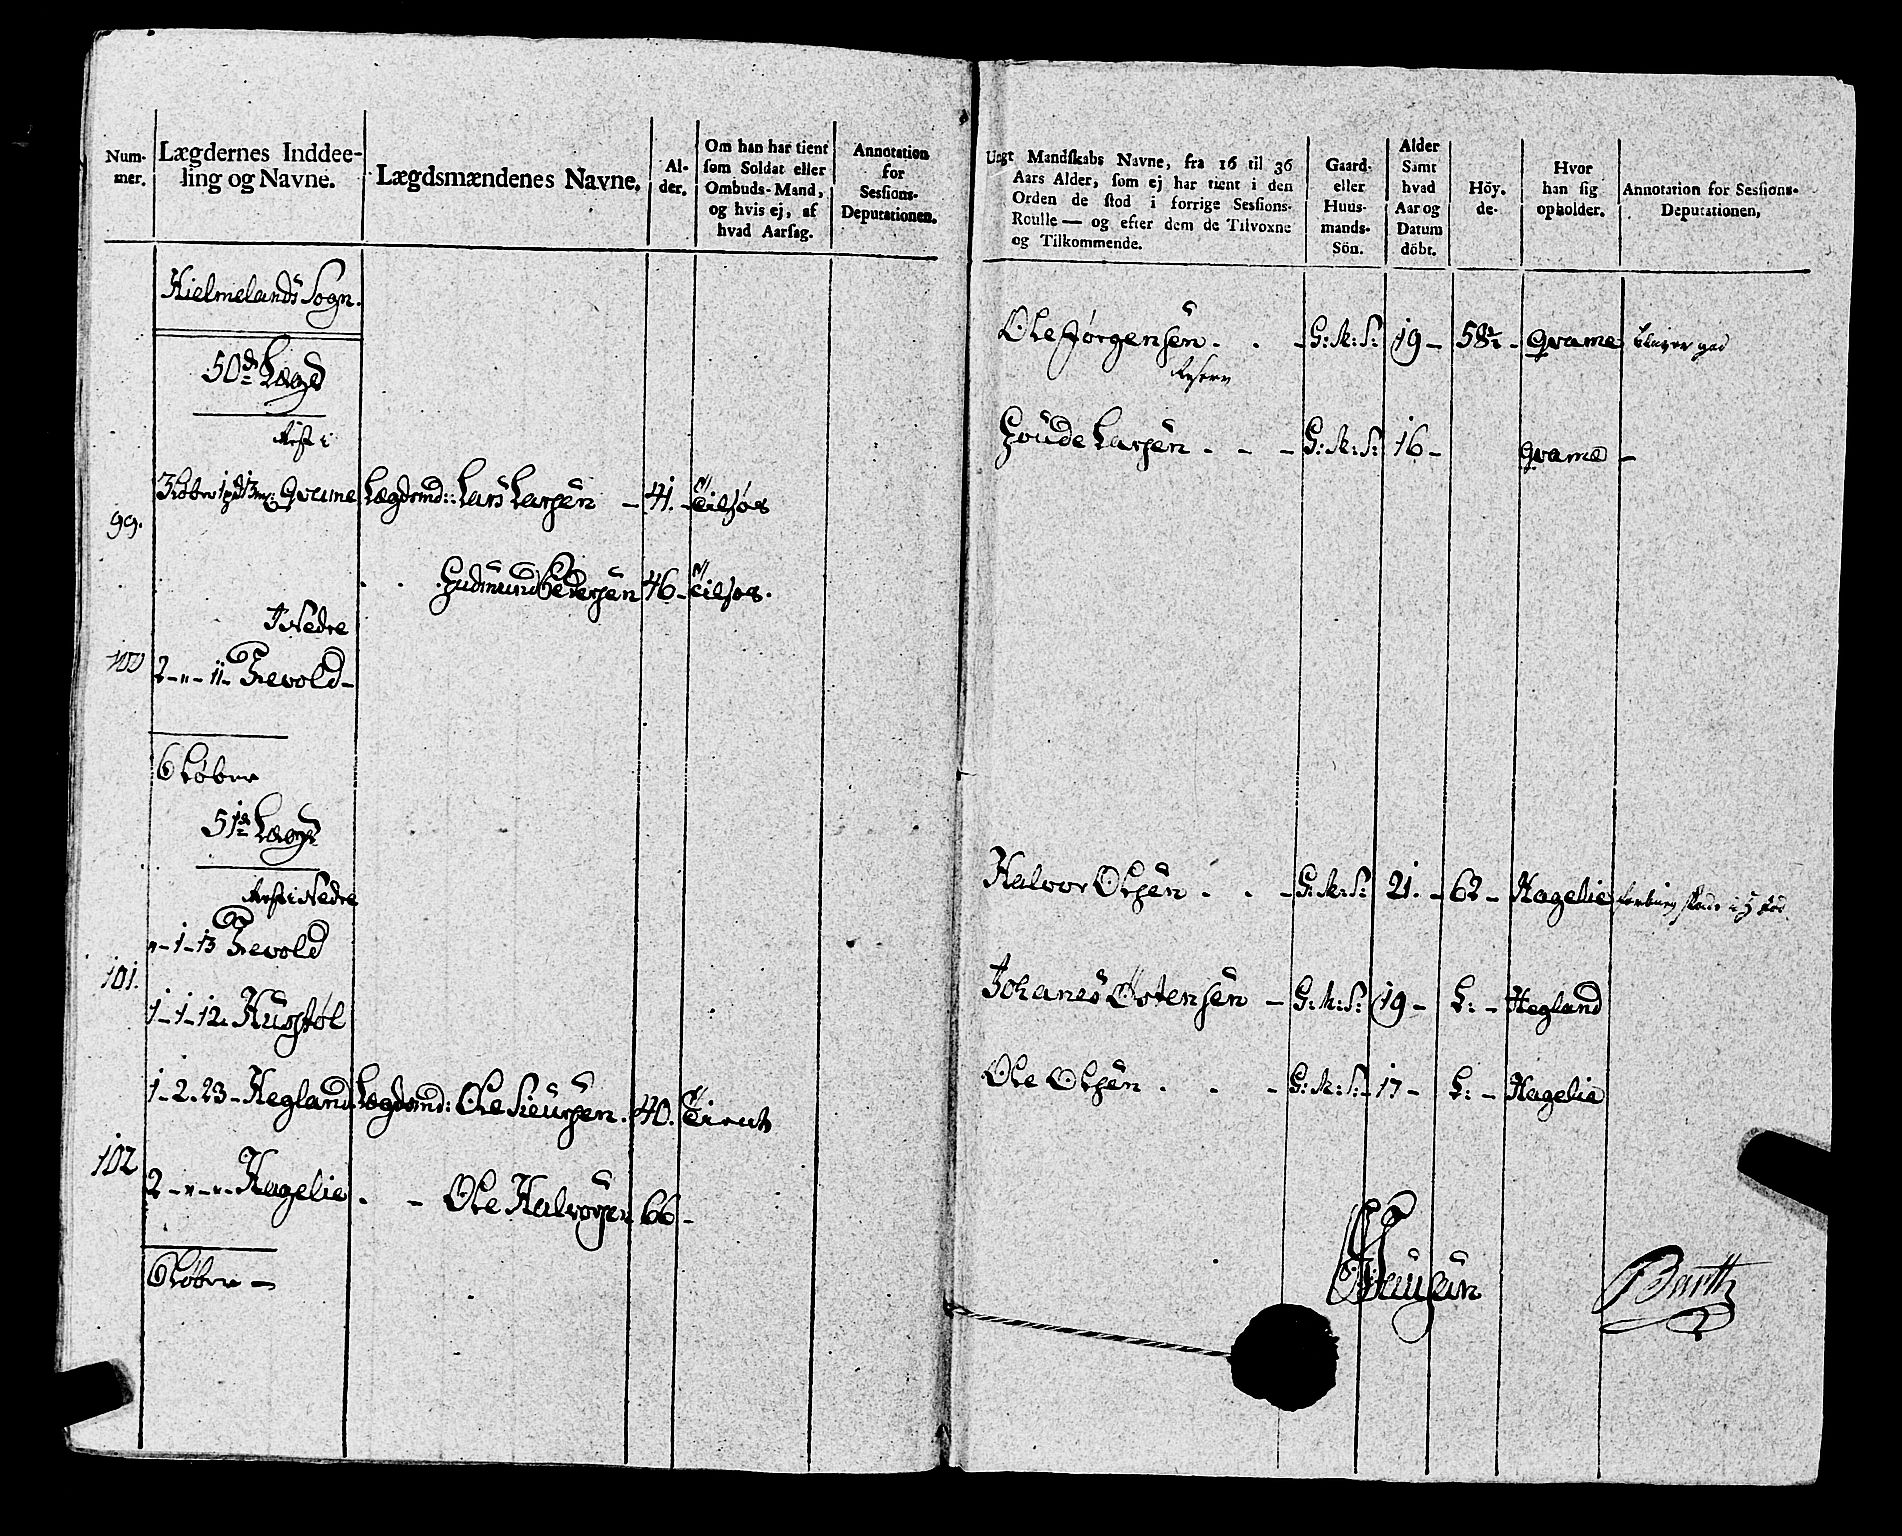 Num-
mer.
Lægdernes Inddee-
ling og Navne.
Lægdsmændenes Navne.
Al-
der.
Om han har tient
som Soldat eller
Ombuds-Mand,
og hvis ej, af
hvad Aarsag.
Annotation
for
Sessions-
Deputationen.
Hielmelands Sogn.
50de Lægd
99.
Qvame Lægdsmd: Lars Larsen - 41.
Gudmund Pedersen 46
I Nedre
100 2 - " - 11 - Trevold -
6 Løber
51de Lægd
Nedre
" - 1 - 13 Trevold
101.
1 - 1 - 12. Husstøl
1 - 2 - 23 - Hegland Lægdsmd: Ole Sieursen. 40.
102
2 - " - " - Hagelie - Ole Halvorsen 66 -
6 Løber -
Ungt Mandskabs Navne, fra 16 til 36
Aars Alder, som ej har tient i den
Orden de stod i forrige Sessions-
Roulle — og efter dem de Tilvoxne
og Tilkommende.
Gaard-
eller
Huus-
mands-
Sön.
Alder
Samt
hvad
Aar og
Datum
döbt.
Höy-
de-
Hvor
han sig
opholder.
Annotation for Sessions-
Deputationen,
Ole Jørgensen . . - G: M: S: 19 - 58½ - Qvame
Reserv
Goude Larsen . - - G: M: S: 16 - Qvame -
Halvor Olsen . . - G: M: S: 21. - 62 - Hagelie
Johanes Østensen - G: M: S: 19 - L: - Hegland
Ole Olsen . - - G: M: S: 17 - L: - Hagelie
Barth